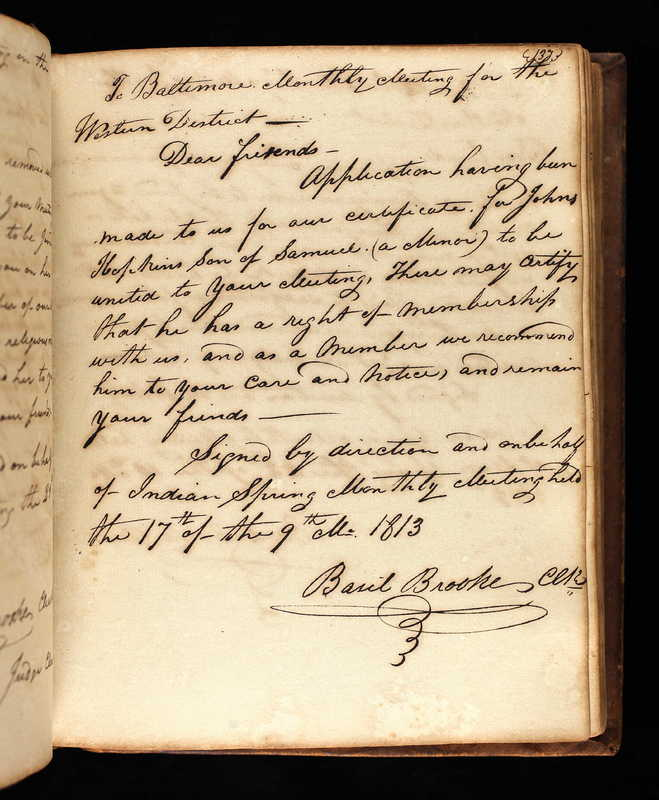 (137)
To Baltimore Monthly Meeting for the
Western District —
Dear friends -
Application having been
made to us for our certificate for Johns
Hopkins Son of Samuel (a Minor) to be
united to your Meeting, These may Certify
that he has a right of membership
with us, and as a Member we recommend
him to your Care and Notice, and remain
your friends —
Signed by direction and on behalf
of Indian Spring Monthly Meeting held
the 17th of the 9th Mo. 1813
Basil Brooke, Clk
in the
removed
your
to be
on her
of our
religious
her to
your friends
on behalf
the
Judge